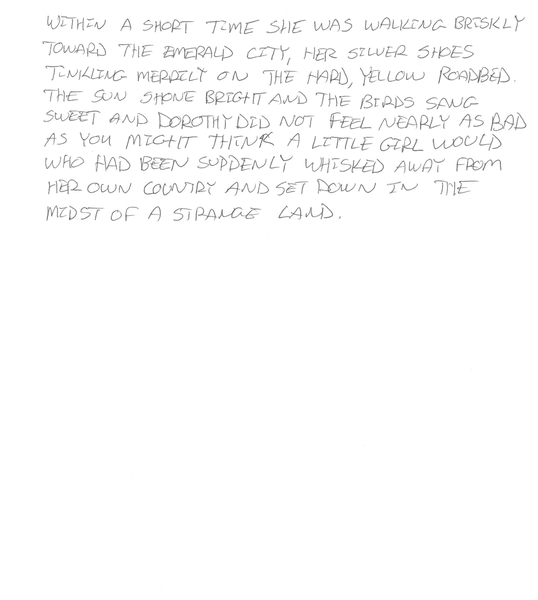 WITHIN A SHORT TIME SHE WAS WALKING BRISKLY
TOWARD THE EMERALD CITY, HER SILVER SHOES
TINKLING MERRILY ON THE HARD, YELLOW ROADBED.
THE SUN SHONE BRIGHT AND THE BIRDS SANG
SWEET AND DOROTHY DID NOT FEEL NEARLY AS BAD
AS YOU MIGHT THINK A LITTLE GIRL WOULD
WHO HAD BEEN SUDDENLY WHISKED AWAY FROM
HER OWN COUNTRY AND SET DOWN IN THE
MIDST OF A STRANGE LAND.